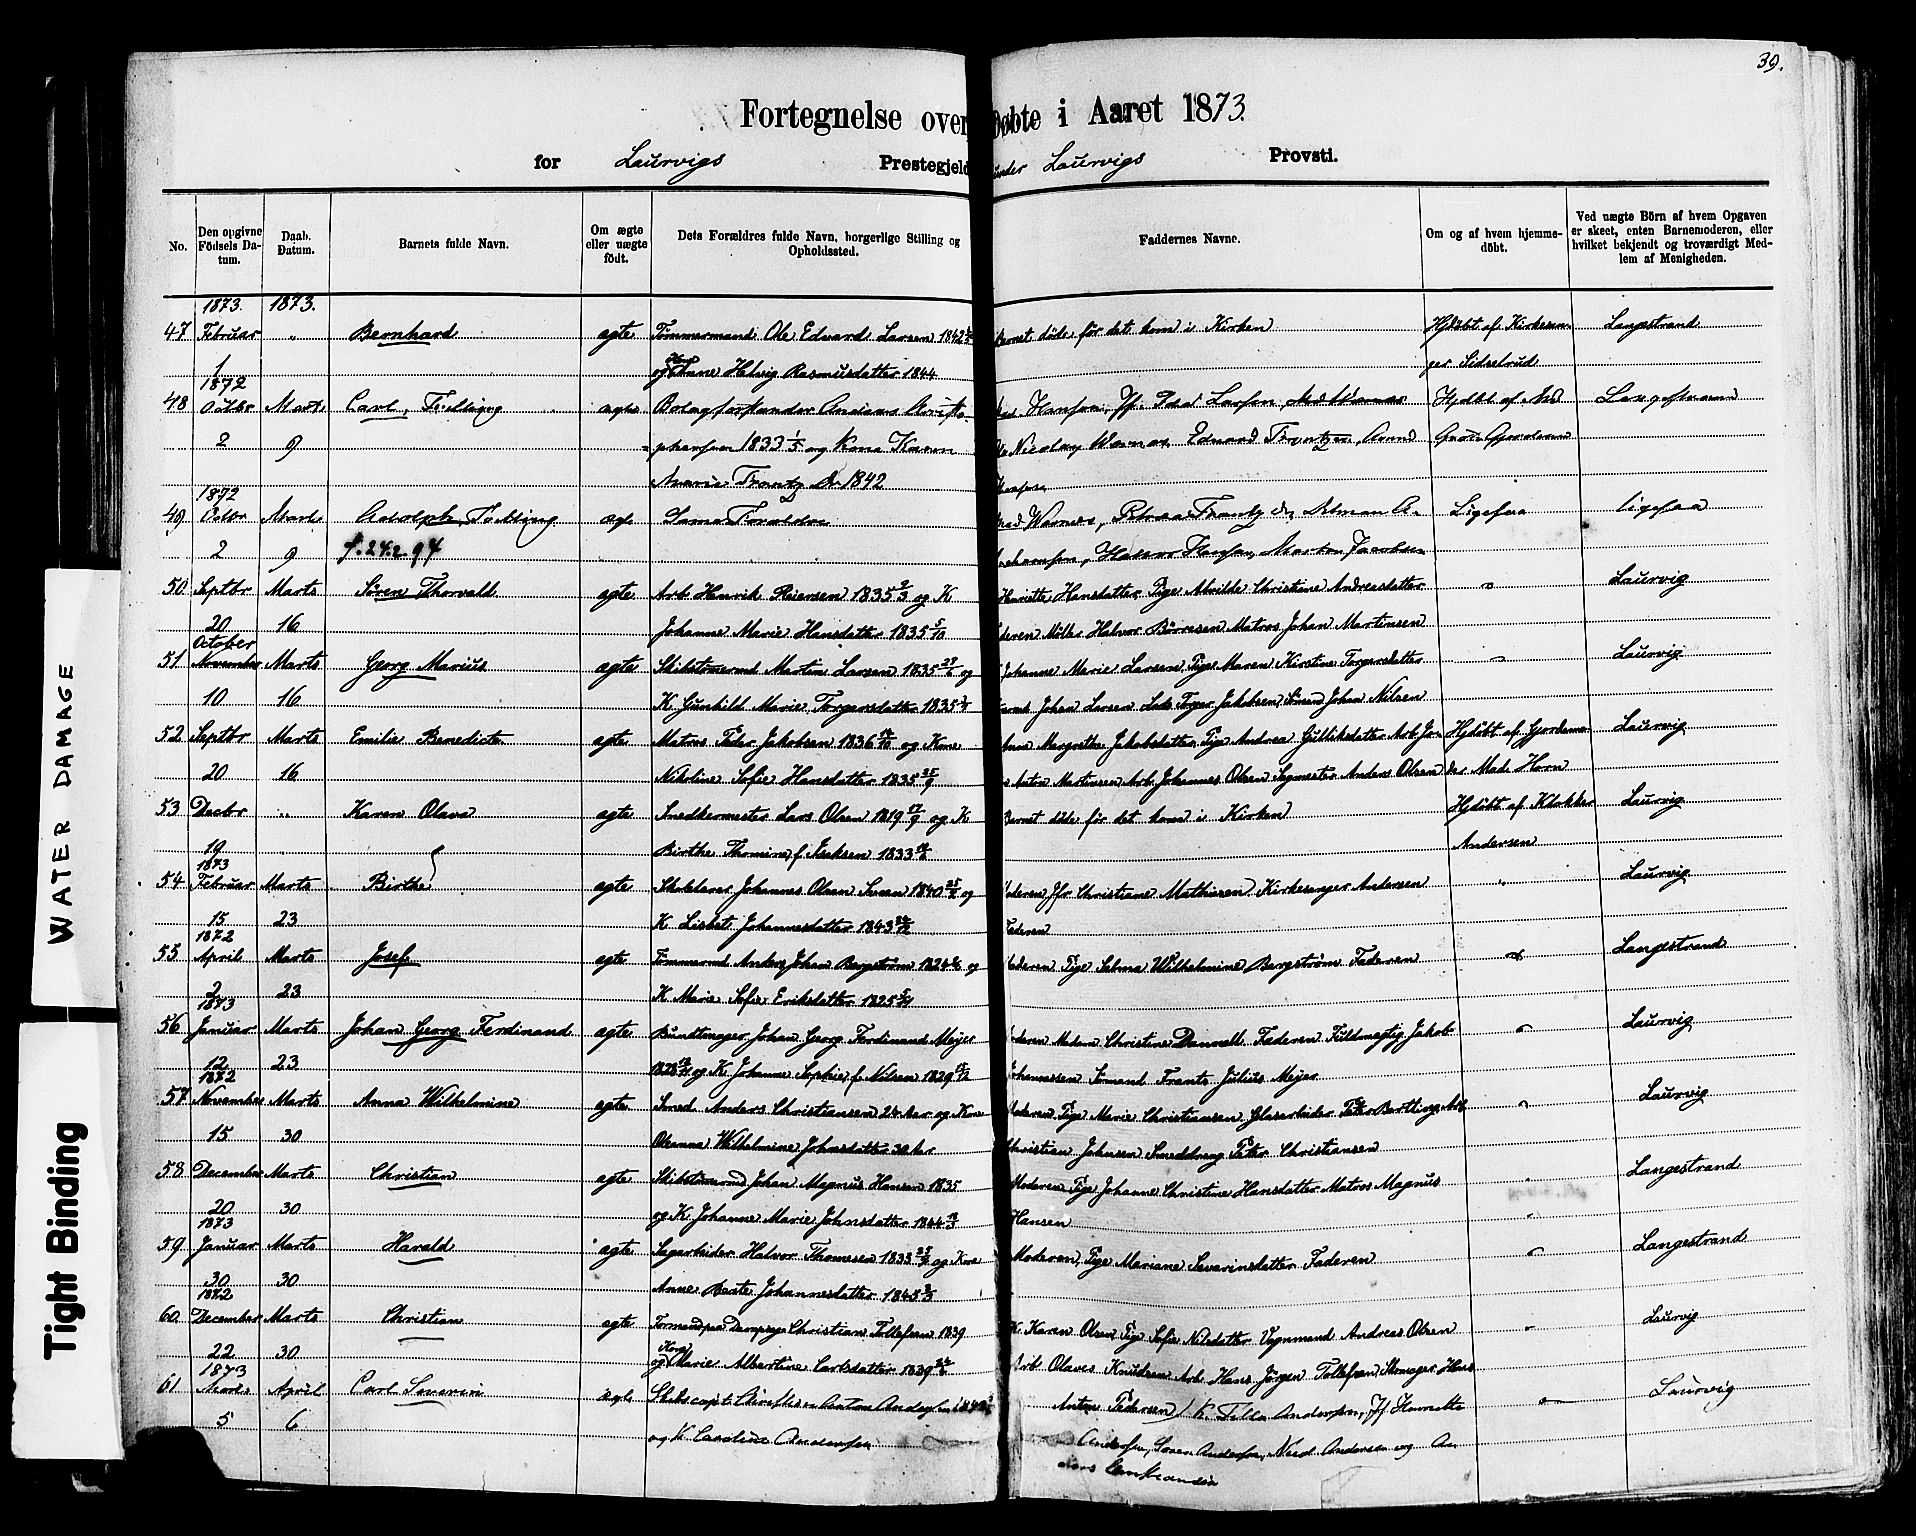 39.
Fortegnelse over Døbte i Aaret 1873.
for Laurvigs Prestegjeld under Laurvigs Provsti.
No.
Den opgivne Födsels Datum.
Daab. Datum.
Barnets fulde Navn.
Om ægte eller uægte födt.
Dets Forældres fulde Navn, borgerlige Stilling og Opholdssted.
Faddernes Navne.
Om og af hvem hjemmedöbt.
Ved uægte Börn af hvem Opgaven er skeet, enten Barnemoderen, eller hvilket bekjendt og troværdigt Medlem af Menigheden.
1873. 1873.
47 Februar " Bernhard ægte Tømmermand Ole Edvard Larsen 1842 Barnet døde før det kom i Kirken Hjdöbt af Kirkesan- Langestrand
1 og Kone Anne Helvig Rasmusdatter 1844 ger Sidselrud
1872
48 Octbr Marts Carl, Tvilling ægte Andreas Christo- Hansen, Jf. Larsen Hjdöbt af Langestrand
2 9 phersen 1833 1/5 og Kone Karen Nicolay Warnes, Edvard Frantzen
Marie Frantz D. 1842
1872
49 Octbr Marts Adolph, Tvilling ægte Samme Forældre Warnes, Petrea Frantz D. Ligesaa ligesaa
2 9 f. 24.2.94 Hansen, Morten Jacobsen
50 Septbr Marts Søren Thorvald ægte Arb Henrik Reiersen 1835 og K Henriette Hansdatter Pige Alvilde Christiane Andreasdatter " Laurvig
20 16 Johanne Marie Hansdatter 1835 5/10 Faderen Møller Halvor Børresen Matros Johan Martinsen
October
51 November Marts Georg Marius ægte Skibstømmermd Martin Larsen 1835 og Johanne Marie Larsen Pige Maren Kirstine Torgersdatter " Laurvig
10 16 K Gunhild Marie Torgersdatter 1835 Johan Larsen Lods Torger Jakobsen, Sömand Johan Nilsen
52 Septbr Marts Emilie Benedicte ægte Matros Peder Jakobsen 1836 og Kone Anne Margrethe Jakobsdatter, Pige Andrea Gulliksdatter Arb Jo- Hjdöbt af Gjordemo- Laurvig
20 16 Nikoline Sofie Hansdatter 1835 25/9 Anton Martinsen Arb. Johannes Olsen Segmester Anders Olsen der Mad. Horn
53 Decbr " Karen Olava ægte Snedkermester Lars Olsen 1819 og K Barnet döde för det kom i Kirken Hjdöbt af Klokker Laurvig
19 Birthe Thomine f. Isaksen 1833 Andersen
1873
54 Februar Marts Birthe ægte Skolelærer Johannes Olsen 1840 og Moderen, Jfr Christiane Mathisen, Kirkesanger Andersen " Laurvig
15 23 K Lisbet Johannesdatter 1843 Faderen
1872
55 April Marts Josef ægte Tömmermd Anders Johan Bergström 1824 og Moderen Pige Selma Wilhelmine Bergström Faderen " Langestrand
2 23 K Marie Sofie Eriksdatter 1825
1873
56 Januar Marts Johan Georg Ferdinand ægte Bundtmager Johan Georg Ferdinand Meijer Moderen Madam Christine Dannell Faderen Fuldmegtig Jakob " Laurvig
12 23 1828 og K Johanne Sophie f. Nilsen 1829 Johannessen Sömand Frants Julius Meijer
1872
57 November Marts Anna Wilhelmine ægte Smed Anders Christiansen 24 Aar og Kone Moderen, Pige Marie Christiansen Glasarbeider Peter Bertling Arb " Laurvig
15 30 Oleanna Wilhelmine Johnsdatter 30 Aar Christian Johnsen Smeddreng Peter Christiansen
58 December Marts Christian ægte Skibstömmermd Johan Magnus Hansen 1835 Moderen Pige Johanne Christine Hansdatter Matros Magnus " Langestrand
20 30 og K Johanne Marie Johnsdatter 1844 Hansen
1873
59 Januar Marts Harald ægte Sagarbeider Halvor Thomesen 1835 og Kone Moderen, Pige Mariane Severinsdatter Faderen " Langestrand
30 30 Anne Beate Johannesdatter 1845
1872
60 December Marts Christian ægte Formand paa Dampsag Christian Tollefsen 1839 K Karen Olsen Pige Sofie Nilsdatter Vognmand Andreas Olsen " Laurvig
22 30 og Kone Marie Albertine Carlsdatter 1839 Arb Olaves Knudsen Arb Hans Jörgen Tollefsen, Skomager Hans
1873 Anton Pedersen
61 Marts April Carl Severin ægte Skibscapt. Christian Anton Andersen K. Tilla Andersen, Jf Henriette " Laurvig
5 6 og K Caroline Andersen Andersen, Søren Andersen, Andersen og An-
ders
WATER DAMAGE
Tight Binding